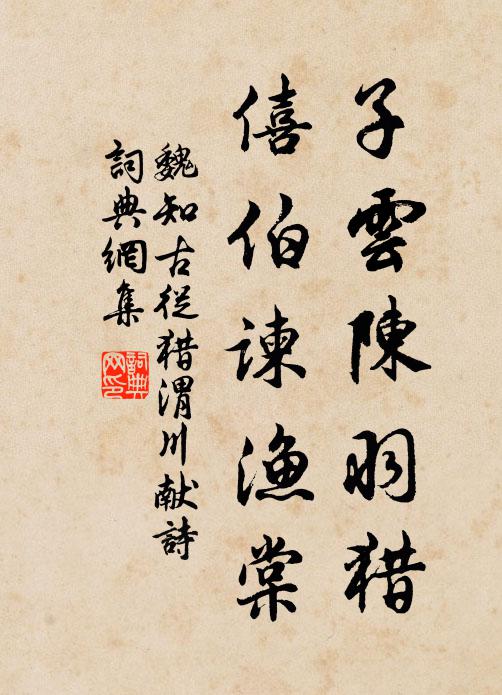 子雲陳羽猎
僖伯諫漁棠
魏知古從猎渭川献詩
詞典網集
詞典
网印